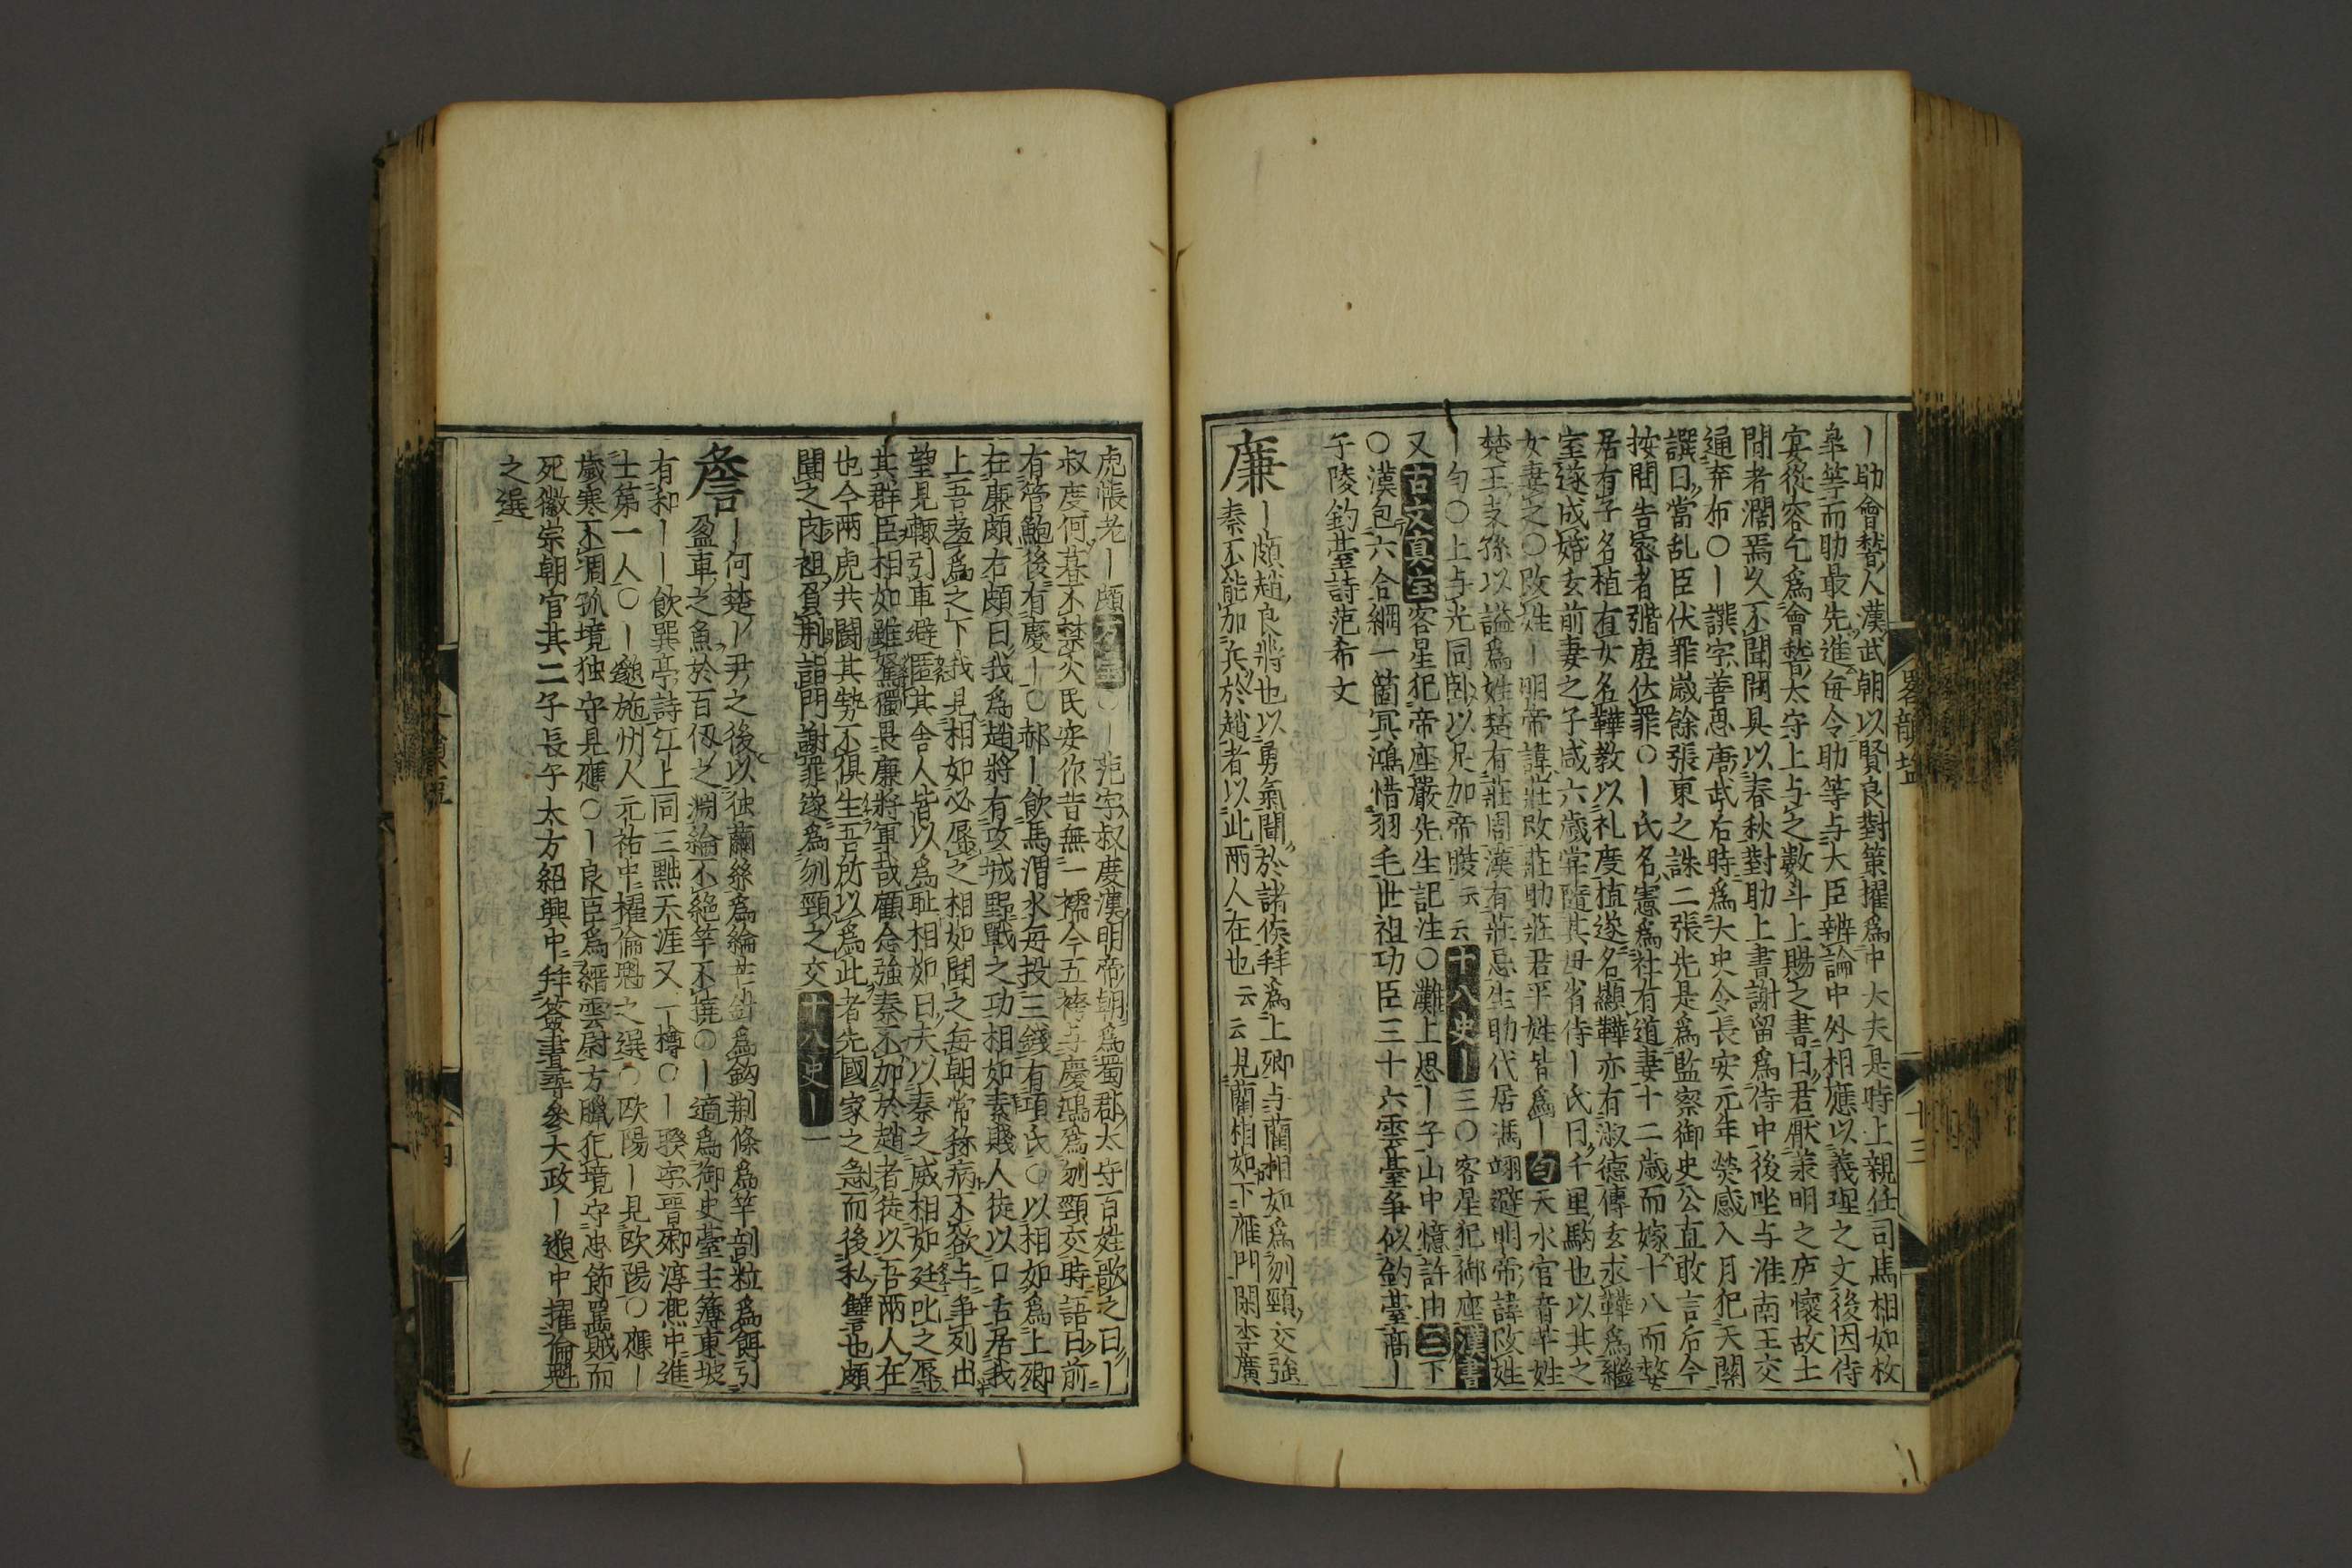 丨助會嵆人漢武朝以賢良對策擢爲中大夫是時上親任司馬相如枚
皐等而助最先進每令助等与大臣辨論中外相應以義理之文後因侍
宴從容乞爲會嵆太守上与之數斗上賜之書曰君厭羕明之庐懷故土
間者濶焉久不聞問具以春秋對助上書謝留爲侍中後唑与淮南王交
通弃市○丨譔字善思唐武右時爲大史令長安元年熒惑入月犯天關
譔曰當乱臣伏罪歲餘張東之誅二張先是爲監察御史公直敢言后今
按間告密者 虗伏罪○丨氏名憲爲社有道妻十二歲而嫁十八而嫠
居有子名植有女名韡教以礼度植遂名顯韡亦有淑德傳玄求韡爲繼
室遂成婚玄前妻之子咸六歲甞隨其母省侍丨氏曰千里駒也以其之
女妻之○改姓丨明帝諱莊改莊助莊君平姓皆爲丨匀天水官音芊姓
楚王支孫以謚爲姓楚有莊周漢有莊忌生助代居馮翊避明帝諱改姓
丨匀○上与光同卧以足加帝腹云云十八史丨三○客星犯御座漢書
又古文真宝客星犯帝座嚴先生記注○灘上思丨子山中憶許由三下
○漢包六合網一箇冥鴻惜羽毛世祖功臣三十六雲臺争似釣臺高丨
子陵釣臺詩范希文
廉丨頗趙良將也以勇氣聞於諸侯拜爲上卿与藺相如爲刎頸交強
秦不能加兵於趙者以此兩人在也云云見藺相如下雁門閑李廣
虎帳老丨頗 ○丨范字叔度漢明帝朝爲蜀郡太守百姓歌之曰丨
叔度何暮不禁火民安作昔無一襦今五袴与慶鴻爲刎頸交時語曰前
有管鮑後有慶丨○郝丨飲馬渭水每投三錢有項氏○以相如爲上卿
在廉頗右頗曰我爲趙將有攻城野戰之功相如素賤人徒以口舌居我
上吾羞爲之下我見相如必辱之相如聞之每朝常称病不欲与争列出
望見輙引車避匿其舎人皆以爲耻相如曰夫以秦之威相如廷叱之辱
其群臣相如雖駑獨畏廉將軍哉顧念強秦不加於趙者徒以吾兩人在
也今兩虎共闘其勢不俱生吾所以爲此者先國家之急而後私讐也頗
聞之肉袒負荆詣門謝罪遂爲刎頸之交十八史丨一
詹丨何楚丨尹之後以独繭絲爲綸芒針爲鈎荆條爲竿剖粒爲餌引
盈車之魚於百仭之淵綸不絶竿不撓○丨適爲御史臺主簿東坡
有和丨丨飲巽亭詩江上同三黙天涯又一樽○丨騤字晋卿淳熙中進
士第一人○丨邈施州人元祐中擢倫魁之選○欧陽丨見欧陽○應丨
歲寒不凋孤境独守見應○丨良臣爲縉雲尉方臘犯境守忠節罵賊而
死徽宗朝官其二子長午太方紹興中拜簽書䓁參大政丨邈中擢倫魁
之選
畧韻塩
十三